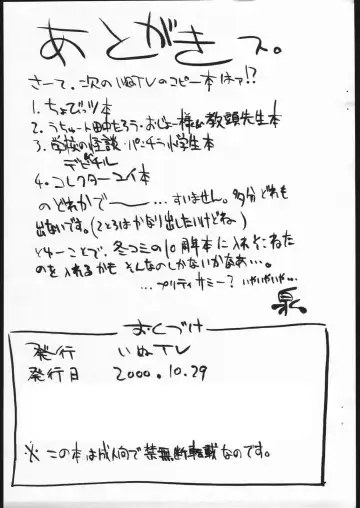 あとがきっス。
さーて、次のいぬTVのコピー本はァ!?
1. ちょびっツ本
2. うちゅート田中たろう・おじょー様&教頭先生本
3. 学校の怪談・パンチラ小学生本
デビチル
4. コレクターユイ本
のどれかで〜……すいません。多分どれも
出ないです。(2と3はかなり出したいけどね)
とゆーことで、冬コミの10周本に入れそこねた
のを入れるかも そんなのしかないかなあ…。
…プリティサミー? いやいやいや…
おくづけ
発行 いぬTV
発行日 2000.10.29
※この本は成人向で禁無断転載なのです。